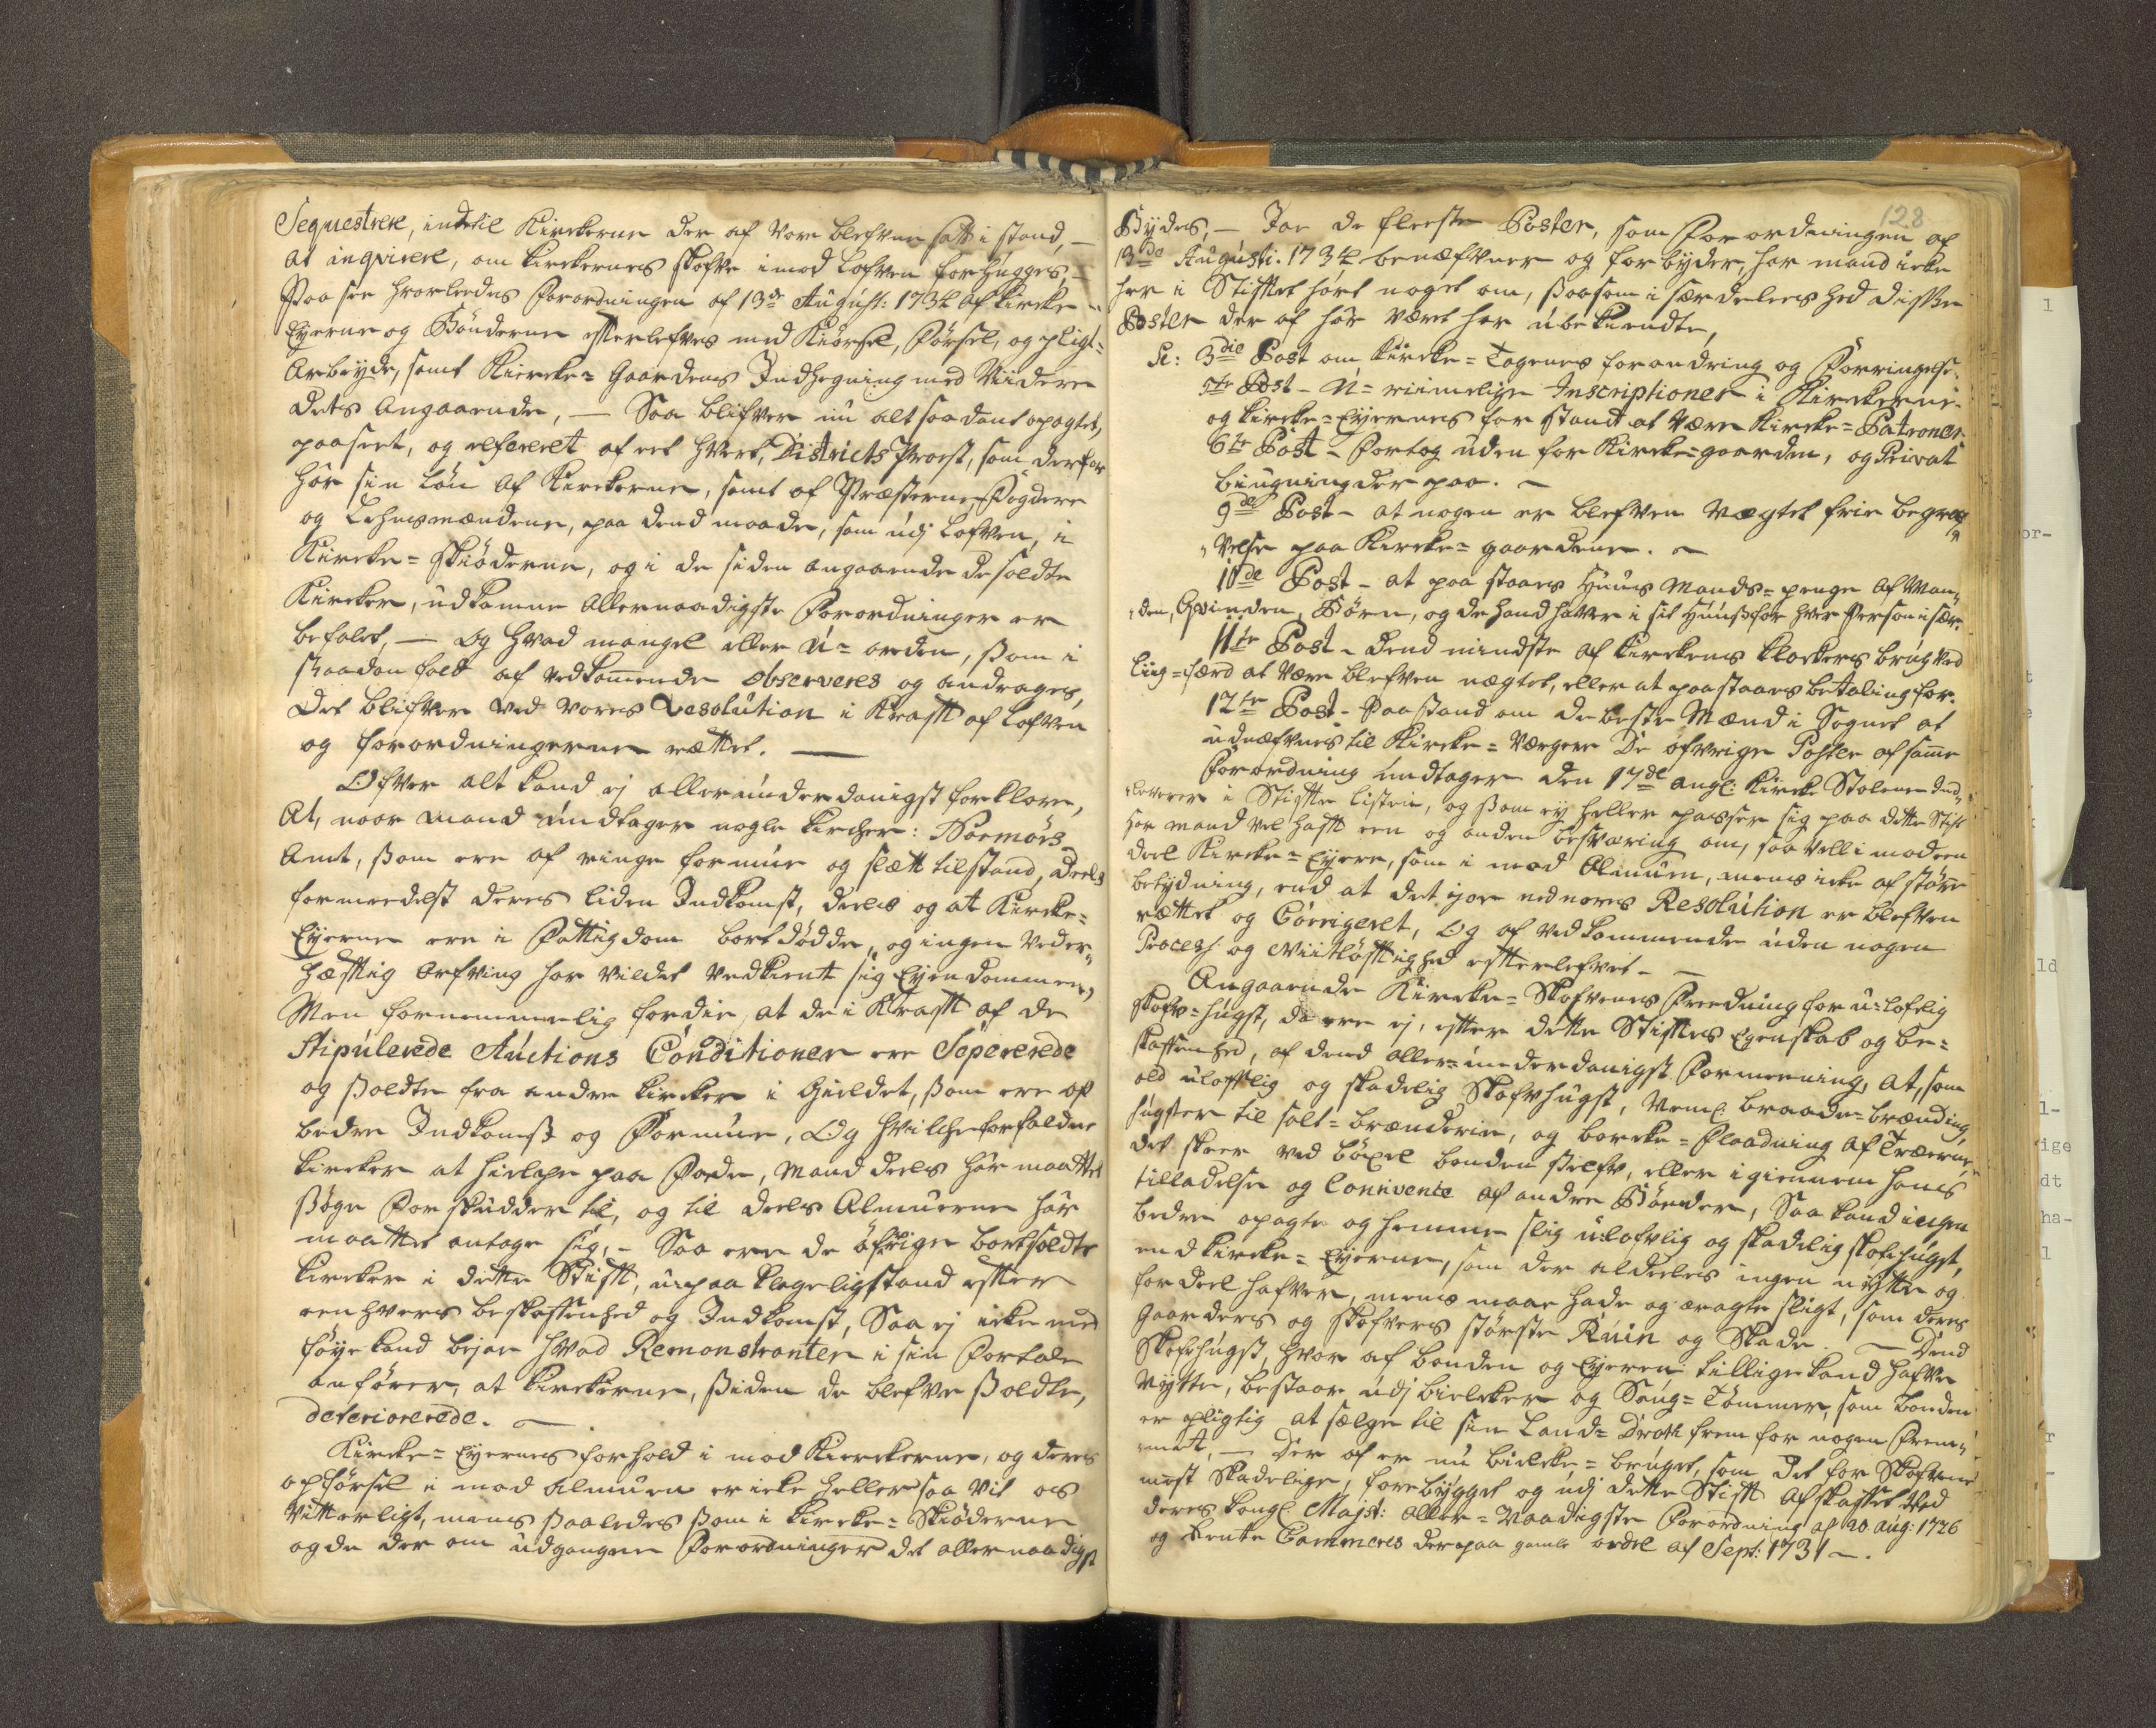 Sequestrere, indtil Kirckerne der af vare blefvne satt i stand, —
at inqvirere, om kirckernes skofve imod lofven forhugges, —
Paa see hvorleedes Forordningen af 13de August: 1734 af kircke-
Eyerne og Bønderne efterlefves med Kiørsel, Førsel, og pligt-
Arbeyde, samt Kircke-Gaardens Indhegning med Viidere
dets Angaaende, — Saa blifver nu alt saadant opagtet,
paaseet, og refereret af eet hvert Districts Provst, som derfor
har sin løn af Kirckerne, samt af Præsterne, Fogderne
og Lehnsmændene, paa dend maade, som udj Lofven, i
Kircke-skiøderne, og i de siden angaaende de soldte
Kircker, udkomne Allernaadigste Forordninger er
befalet, — Og hvad mangel eller U-orden, som i
saadan fald af vedkommende observeres og andrages,
det blifver ved vores Resolution i Kraft af lofven
og forordningerne rettet. —
Ofver alt kand ej allerunderdanigst forklare,
At, naar mand undtager nogle kircher: Normørs
Amt, som ere af ringe formue og slætt tilstand, deels
formedelst deres liden Indkomst, deels og at Kircke-
Eyerne ere i Fattigdom bortdødde, og ingen Veder-
hæftig Arfving har vildet vedkient sig Eyendommen,
Men fornemmelig fordie, at de i Kraft af de
Stipulerede Auctions Conditioner ere Sepererede
og soldte fra andre kircker i Gieldet, som ere af
bedre Indkomst og Formue, Og hvilche forfaldne
kircker at hielpe paa Fode, mand deels har maattet
søge Forskudder til, og til deels Almuerne har
maattet antage sig, - Saa ere de øfrige bortsoldte
kircker i dette Stift, u-paaklageligstand efter
een hvers beskaffenhed og Indkomst, Saa ej icke med
føye kand bejae hvad Remonstranten i sin Fortale
anfører, at kirckerne, siden de blefve soldte,
deteriorerede. —
Kircke-Eyernes forhold i mod Kierckerne, og deres
opførsel i mod Almuen er icke heller saa vit os
vitterligt, mens saaledes som i kircke-Skiøderne
og de der om udgangne Forordninger det allernaadigst
128
Bydes, — Jae de fleeste Poster, som Forordningen af
13de Augusti: 1734 benæfner og forbyder, har mand icke
her i Stiftet hørt noget om, saasom i særdeleshed disse
Poster der af har været her ubekiendte,
Sc: 3die Post om Kircke-Tagenes forandring og Forringelse.
5te Post - U-riimelige Inscriptioner i Kirckerne
og kircke-Eyernes forstand at være Kircke-Patroner.
6te Post - Fortog uden for Kircke-gaarden, og Privat
biugning der paa. —
9de Post - at nogen er blefven nægtet frie begra-
velse paa Kircke-gaardene. —
10de Post - at paa staaes Huus Mands-penge af Man-
den, Qvinden, Børn, og de hand haver i sit Huus for hver Person især.
11te Post - Dend mindste af Kirckens klockers brug ved
Liig-færd at være blefven nægtet, eller at paastaaes betaling for.
12te Post - Paastand om de beste Mænd i Sognet at
udnæfnes til Kircke-Værgere De øfvrige Poster af samme
Forordning undtagen den 17de angl: Kircke Stolene ded-
leverer i Stifter listerie, og som ey heller passer sig paa dette Stift
har mand vel haft een og anden besværing om, saa vell i mod een
deel Kircke-Eyere, som i mod Almuen, mens icke af større
betydning, end at det jo ved vores Resolution er blefven
rettet og Corrigeret, Og af vedkommende uden nogen
Process og Viitløftighed efterlefvet. —
Angaaende Kircke-Skofvenes Freedning for u-loflig
skofv-hugst, da ere ej, efter dette Stiftes Egenskab og be-
skaffenhed, af dend aller-underdanigst Formeening, At, som
ald uloflig og skadelig Skofvhugst, Neml: braade-brænding,
hugster til salt-brænderie, og borcke-Flaadning af Træerne,
det skeer ved bøxel bonden sielfv, eller igiennem hans
tilladelse og Connivence af andre Bønder, Saa kand ingen
bedre opagte og hemme slig ulofvlig og skadelig skofvhugst,
end kircke-Eyerne, som der aldeeles ingen nytte og
fordeel hafver, mens maae hade og eragte sligt, som deres
Gaarders og skofvers største Ruin og Skade. — Dend
Skofvhugst, hvor af bonden og Eyeren tillige kand hafve
Nytte, bestaar udj bielcker og Saug-Tømmer, som bonden
er pligtig at sælge til sin Land-Drott frem for nogen Frem-
med, — Der af er nu bielcke-bruget, som det for Skofvene
mest Skadelige, forebygget og udj dette Stift afskaffet ved
deres kongl: Majst: Aller-Naadigste Forordning af 20 Aug: 1726
og Rente Cammeres derpaa gamle ordre af Sept: 1731 —.